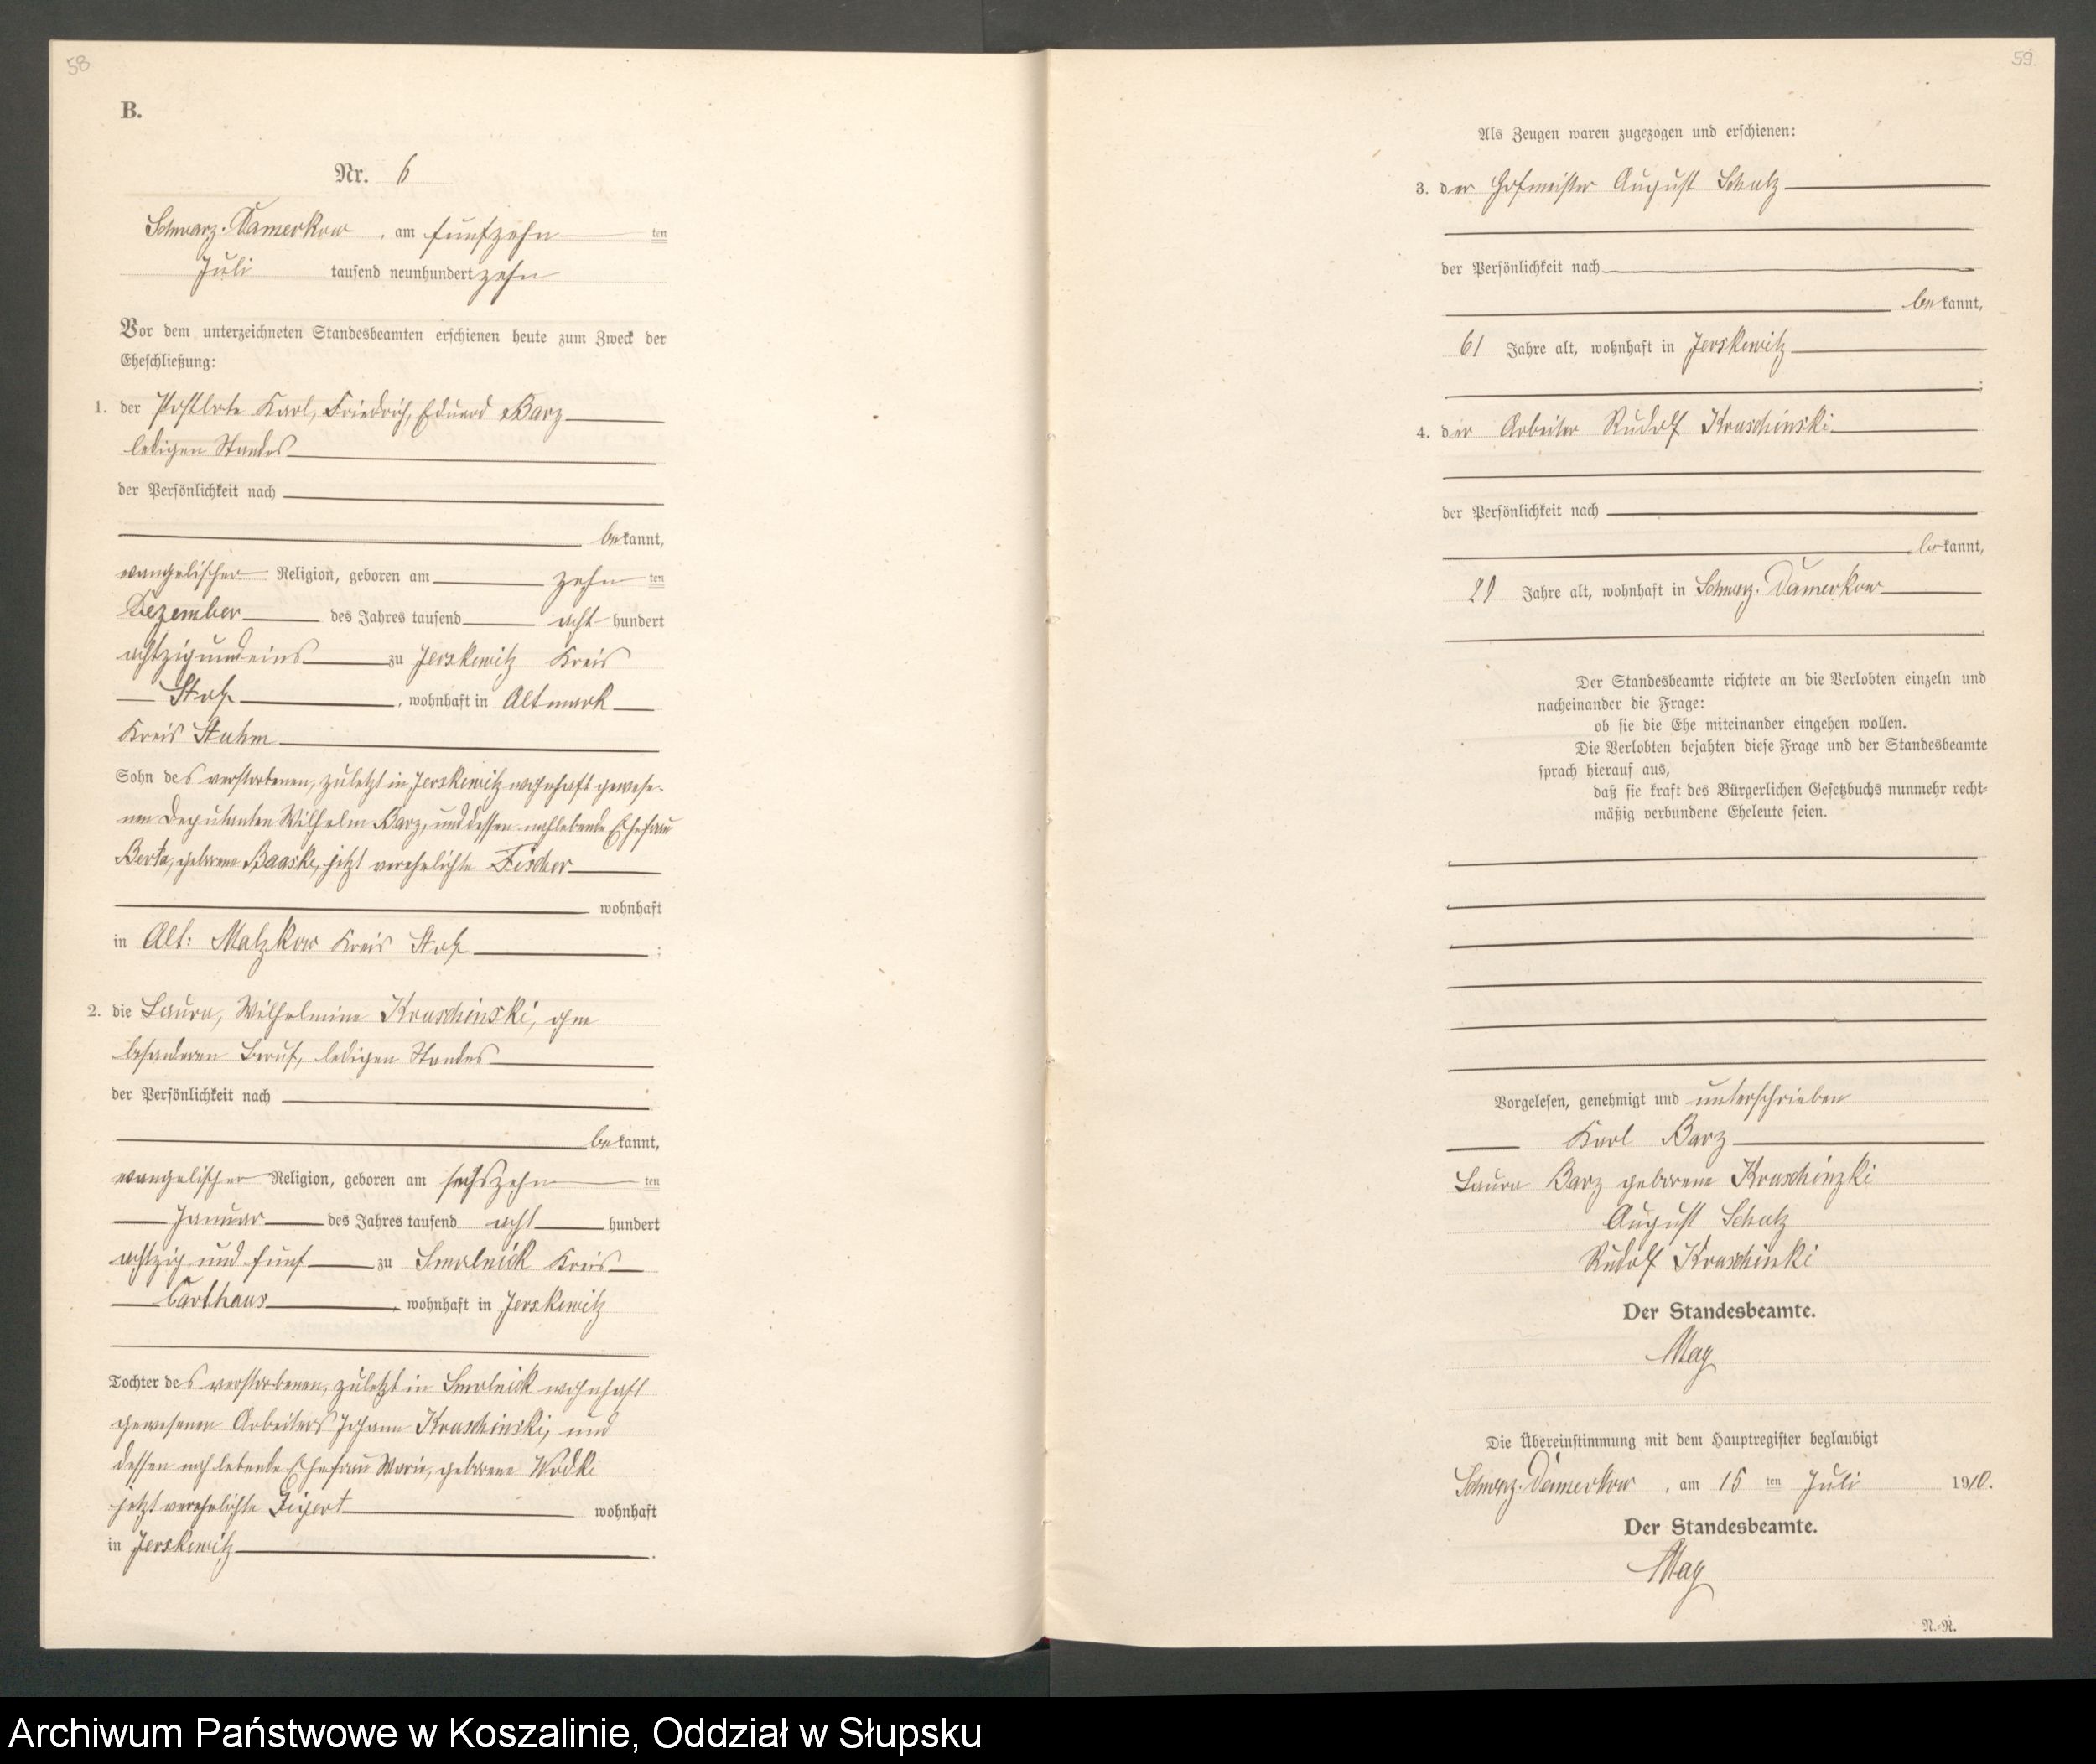 58
B.
Nr. 6
Schwarz-Damerkow, am fünfzehn ten
Juli tausend neunhundert zehn
Vor dem unterzeichneten Standesbeamten erschienen heute zum Zweck der
Eheschließung:
1. der Postbote Karl, Friedrich, Eduard Barz
ledigen Standes
der Persönlichkeit nach
bekannt,
evangelischer Religion, geboren am zehn ten
Dezember des Jahres tausend acht hundert
achtzigundeins zu Jerskewitz Kreis
Stolp, wohnhaft in Altmark
Kreis Stuhm
Sohn des verstorbenen, zuletzt in Jerskewitz wohnhaft gewese-
nen Deputanten Wilhelm Barz, und dessen nachlebende Ehefrau
Berta, geborene Baaske, jetzt verehelichte Fischer
wohnhaft
in Alt: Malzkow Kreis Stolp;
2. die Laura, Wilhelmine Kruschinski, ohne
besonderen Beruf, ledigen Standes
der Persönlichkeit nach
bekannt,
evangelischer Religion, geboren am sechszehn ten
Januar des Jahres tausend acht hundert
achtzig und fünf zu Smolnick Kreis
Carthaus, wohnhaft in Jerskewitz
Tochter des verstorbenen, zuletzt in Smolnick wohnhaft
gewesenen Arbeiters Johann Kruschinski, und
dessen nachlebende Ehefrau Marie, geborene Wodke
jetzt verehelichte wohnhaft
in Jerskewitz.
59.
Als Zeugen waren zugezogen und erschienen:
3. der Hofmeister August Schulz
der Persönlichkeit nach
bekannt,
61 Jahre alt, wohnhaft in Jerskewitz
;
4. der Arbeiter Rudolf Kruschinski
der Persönlichkeit nach
bekannt,
29 Jahre alt, wohnhaft in Schwarz-Damerkow
.
Der Standesbeamte richtete an die Verlobten einzeln und
nacheinander die Frage:
ob sie die Ehe miteinander eingehen wollen.
Die Verlobten bejahten diese Frage und der Standesbeamte
sprach hierauf aus,
daß sie kraft des Bürgerlichen Gesetzbuchs nunmehr recht-
mäßig verbundene Eheleute seien.
Vorgelesen, genehmigt und unterschrieben
Karl Barz
Laura Barz geborene Kruschinzki
August Schulz
Rudolf Kruschinki
Der Standesbeamte.
May
Die Übereinstimmung mit dem Hauptregister beglaubigt
Schwarz-Damerkow, am 15 ten Juli 1910.
Der Standesbeamte.
May
N.-R.
Archiwum Państwowe w Koszalinie, Oddział w Słupsku